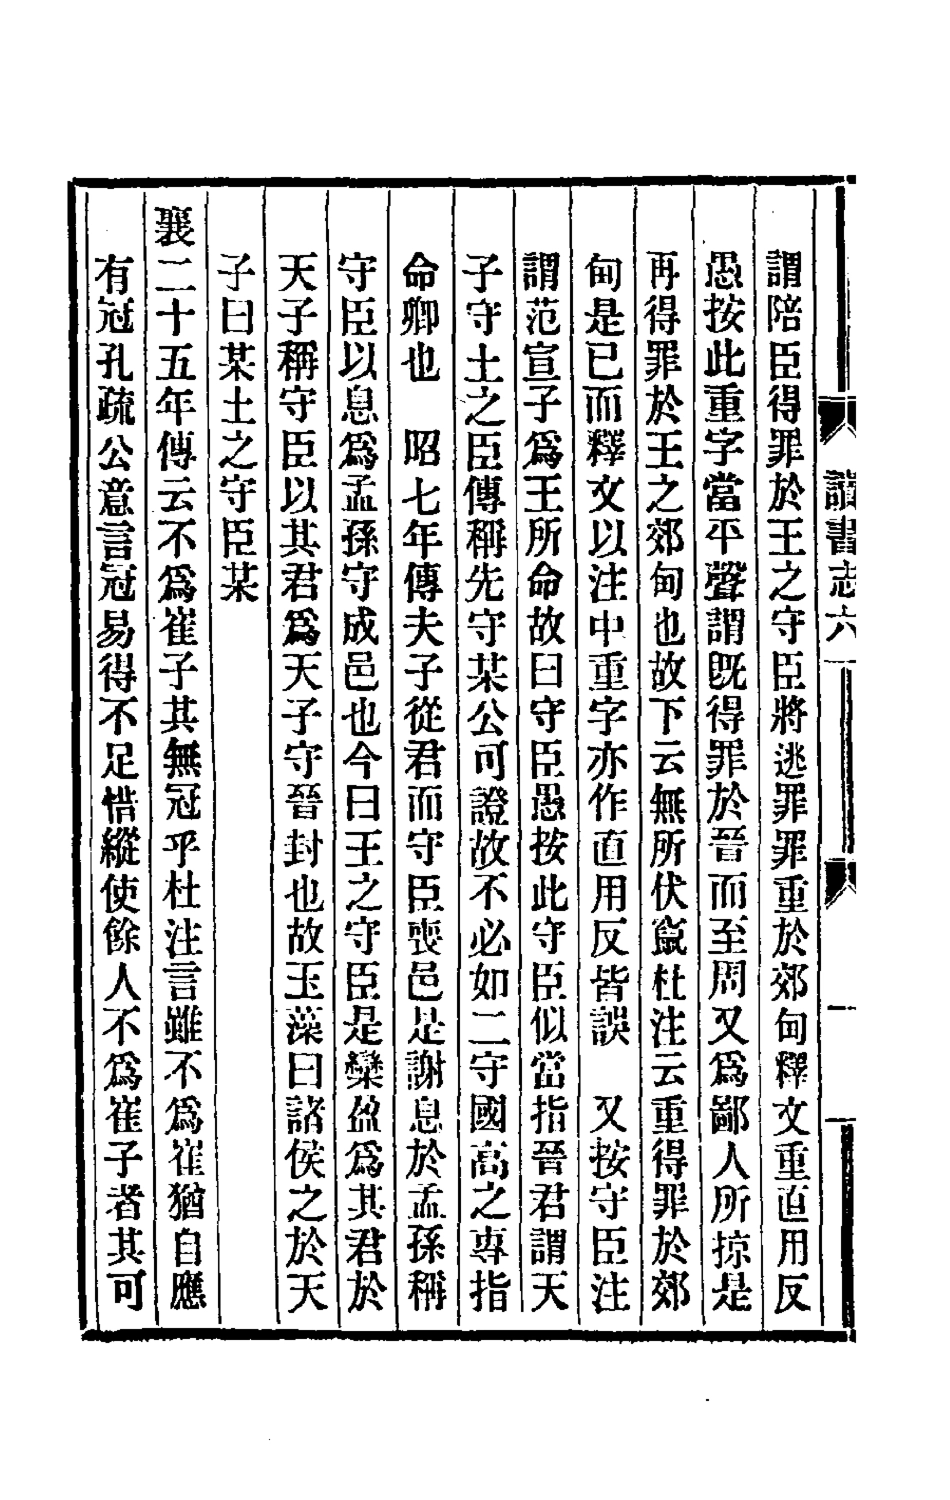 讀書志六
一
謂陪臣得罪於王之守臣將逃罪罪重於郊甸釋文重直用反
愚按此重字當平聲謂旣得罪於晉而至周又爲鄙人所掠是
再得罪於王之郊甸也故下云無所伏竄杜注云重得罪於郊
甸是已而釋文以注中重字亦作直用反皆誤　又按守臣注
謂范宣子爲王所命故曰守臣愚按此守臣似當指晉君謂天
子守土之臣傳稱先守某公可證故不必如二守國高之專指
命卿也　昭七年傳夫子從君而守臣喪邑是謝息於孟孫稱
守臣以息爲孟孫守成邑也今曰王之守臣是欒盈爲其君於
天子稱守臣以其君爲天子守晉封也故玉藻曰諸侯之於天
子曰某土之守臣某
襄二十五年傳云不爲崔子其無冠乎杜注言雖不爲崔猶自應
有冠孔疏公意言冠易得不足惜縱使餘人不爲崔子者其可